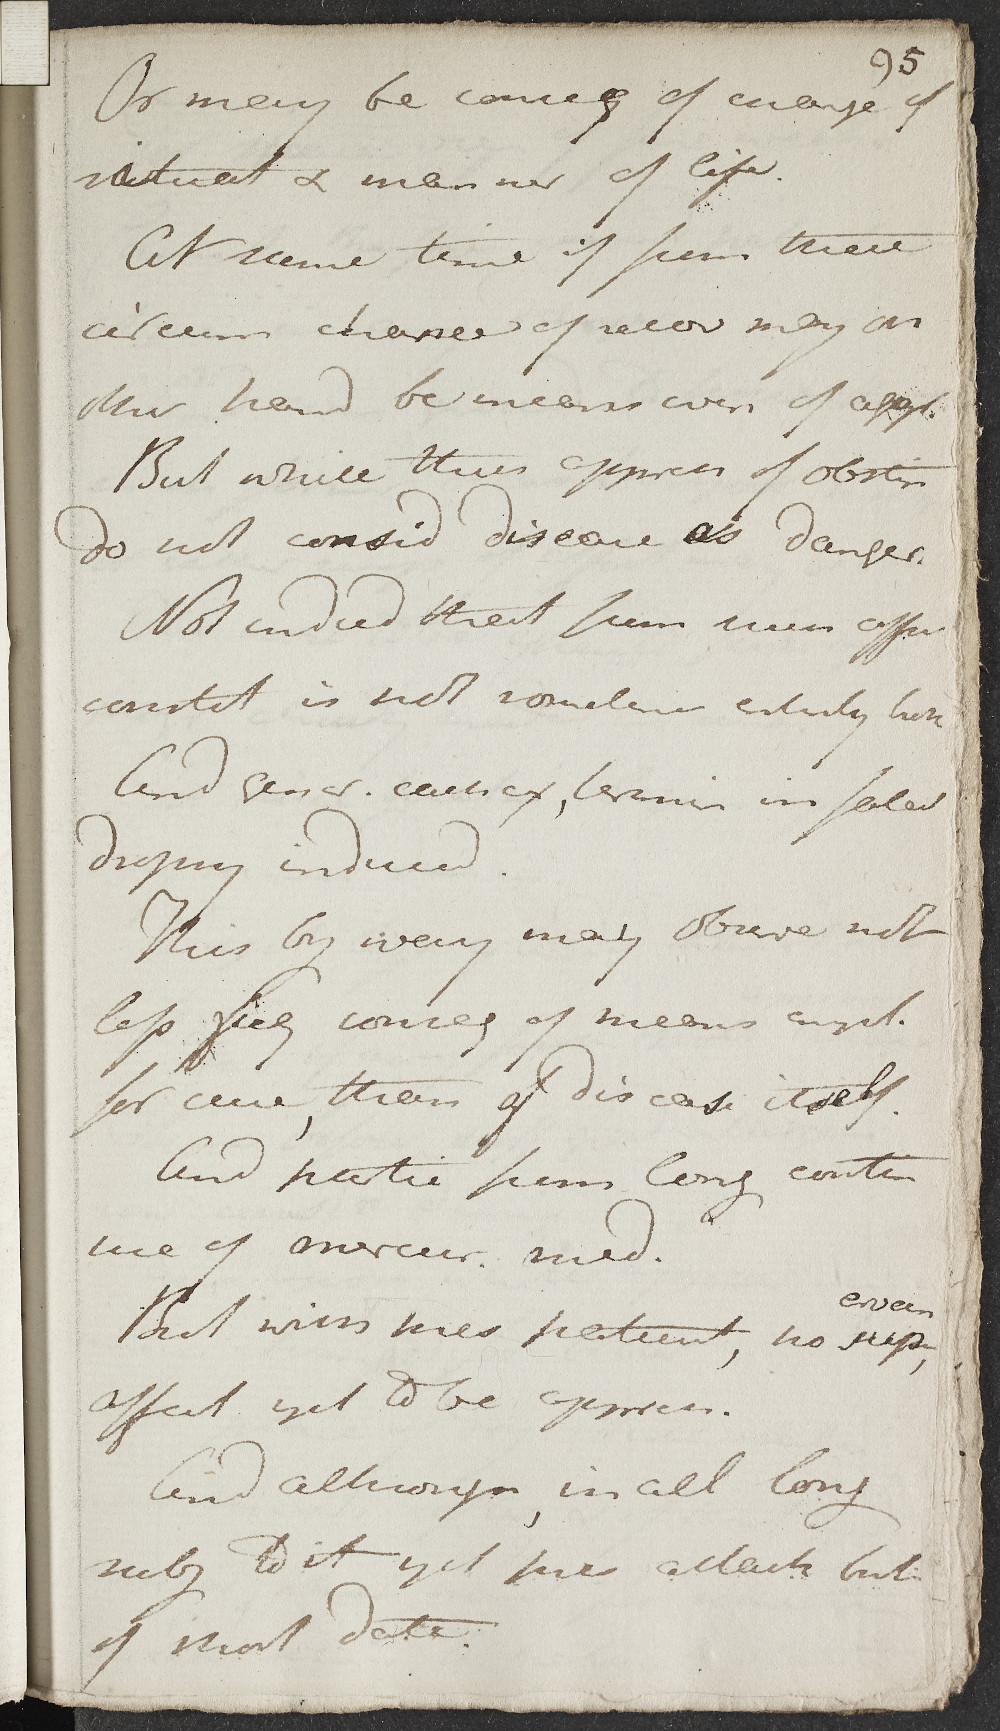 95
Or may be conseq of change of
situat & manner of life.
At same time if from these
circum chance of recov may on
other hand be means even of aggr.
But while thus appreh of obstin
do not consid disease as danger.
Not indeed that from this affec
constit is not sometimes entirely
And gener. cachex, termin in fatal
dropsy induced.
This by way may observe not
less freq conseq of means empl.
for cure, than of disease itself.
And partic from long contin
use of mercur. med.
But with pres patient, no
even
affect yet to be appreh.
And although, in all long
subj to it yet pres attack but
of short date.